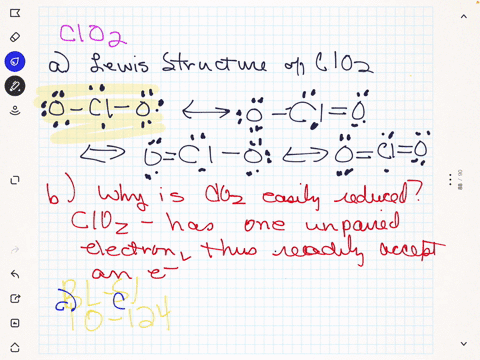 ClO2
a) Lewis Structure of ClO2
O - Cl - O ⟷ O - Cl = O
⟷ O = Cl - O ⟷ O = Cl = O
b) Why is ClO2 easily reduced?
ClO2 - has one unpaired
electron, thus readily accept
an e-
c) C
10-124